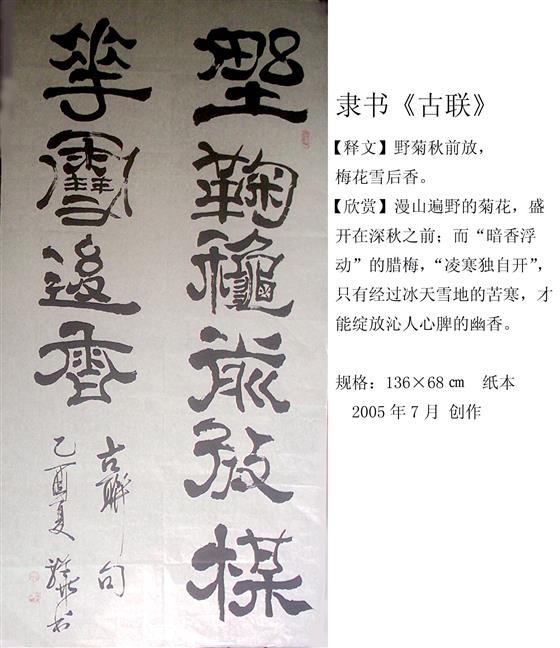 野鞠龝前放楳
華雪後香
古聯句
乙酉夏
隶书《古联》
【释文】野菊秋前放，
梅花雪后香。
【欣赏】漫山遍野的菊花，盛
开在深秋之前；而“暗香浮
动”的腊梅，“凌寒独自开”，
只有经过冰天雪地的苦寒，才
能绽放沁人心脾的幽香。
规格：136×68㎝ 纸本
2005年7月 创作